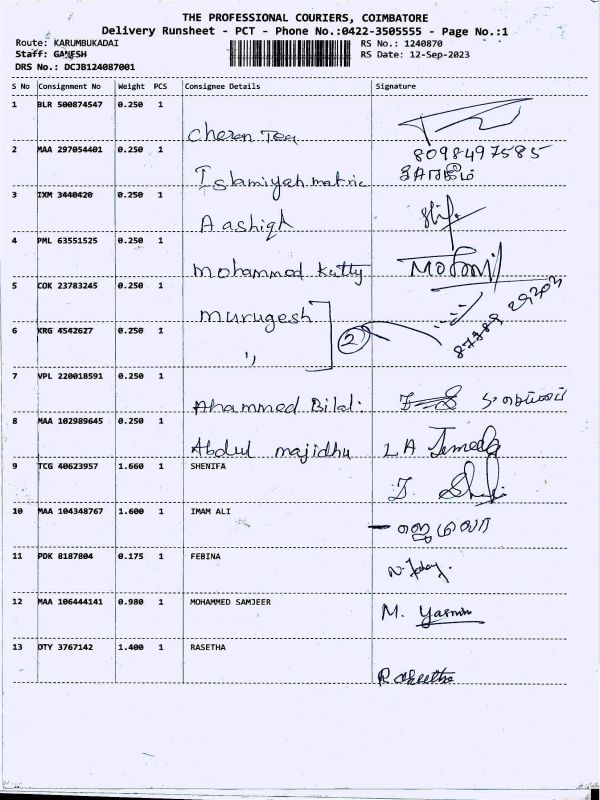 THE PROFESSIONAL COURIERS, COIMBATORE
Delivery Runsheet - PCT - Phone No.:0422-3505555 - Page No.:1
Route: KARUMBUKADAI RS No.: 1240870
Staff: GANESH RS Date: 12-Sep-2023
DRS No.: DCJB124087001
S No Consignment No Weight PCS Consignee Details Signature
1 BLR 500874547 0.250 1
Cheran Tea
2 MAA 297054401 0.250 1 8098497585
Islamiyah matric
3 IXM 3440420 0.250 1
Aashiqh
4 PML 63551525 0.250 1
Mohammed Kutty
5 COK 23783245 0.250 1
Murugesh
6 KRG 4542627 0.250 1 2
,,
7 VPL 220018591 0.250 1
Ahammed Bilal.
8 MAA 102989645 0.250 1
Abdul majidhu L A
9 TCG 40623957 1.660 1 SHENIFA
10 MAA 104348767 1.600 1 IMAM ALI
11 PDK 8187804 0.175 1 FEBINA
12 MAA 106444141 0.980 1 MOHAMMED SAMJEER M. Yasmin
13 OTY 3767142 1.400 1 RASETHA